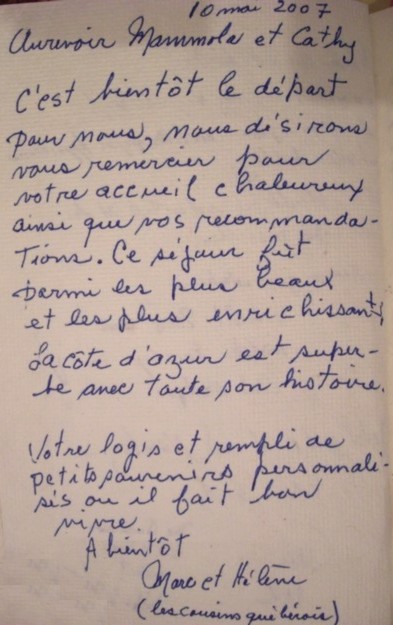 10 mai 2007
Aurevoir Mammola et Cathy
C'est bientôt le départ
pour nous, nous désirons
vous remercier pour
votre accueil chaleureux
ainsi que vos recommanda-
tions. Ce séjour fût
parmi les plus beaux
et les plus enrichissants,
La côte d'azur est super-
be avec toute son histoire.
Votre logis et rempli de
petits souvenirs personnali-
sés ou il fait bon
vivre.
A bientôt
Marc et Hélène
(les cousins québécois)